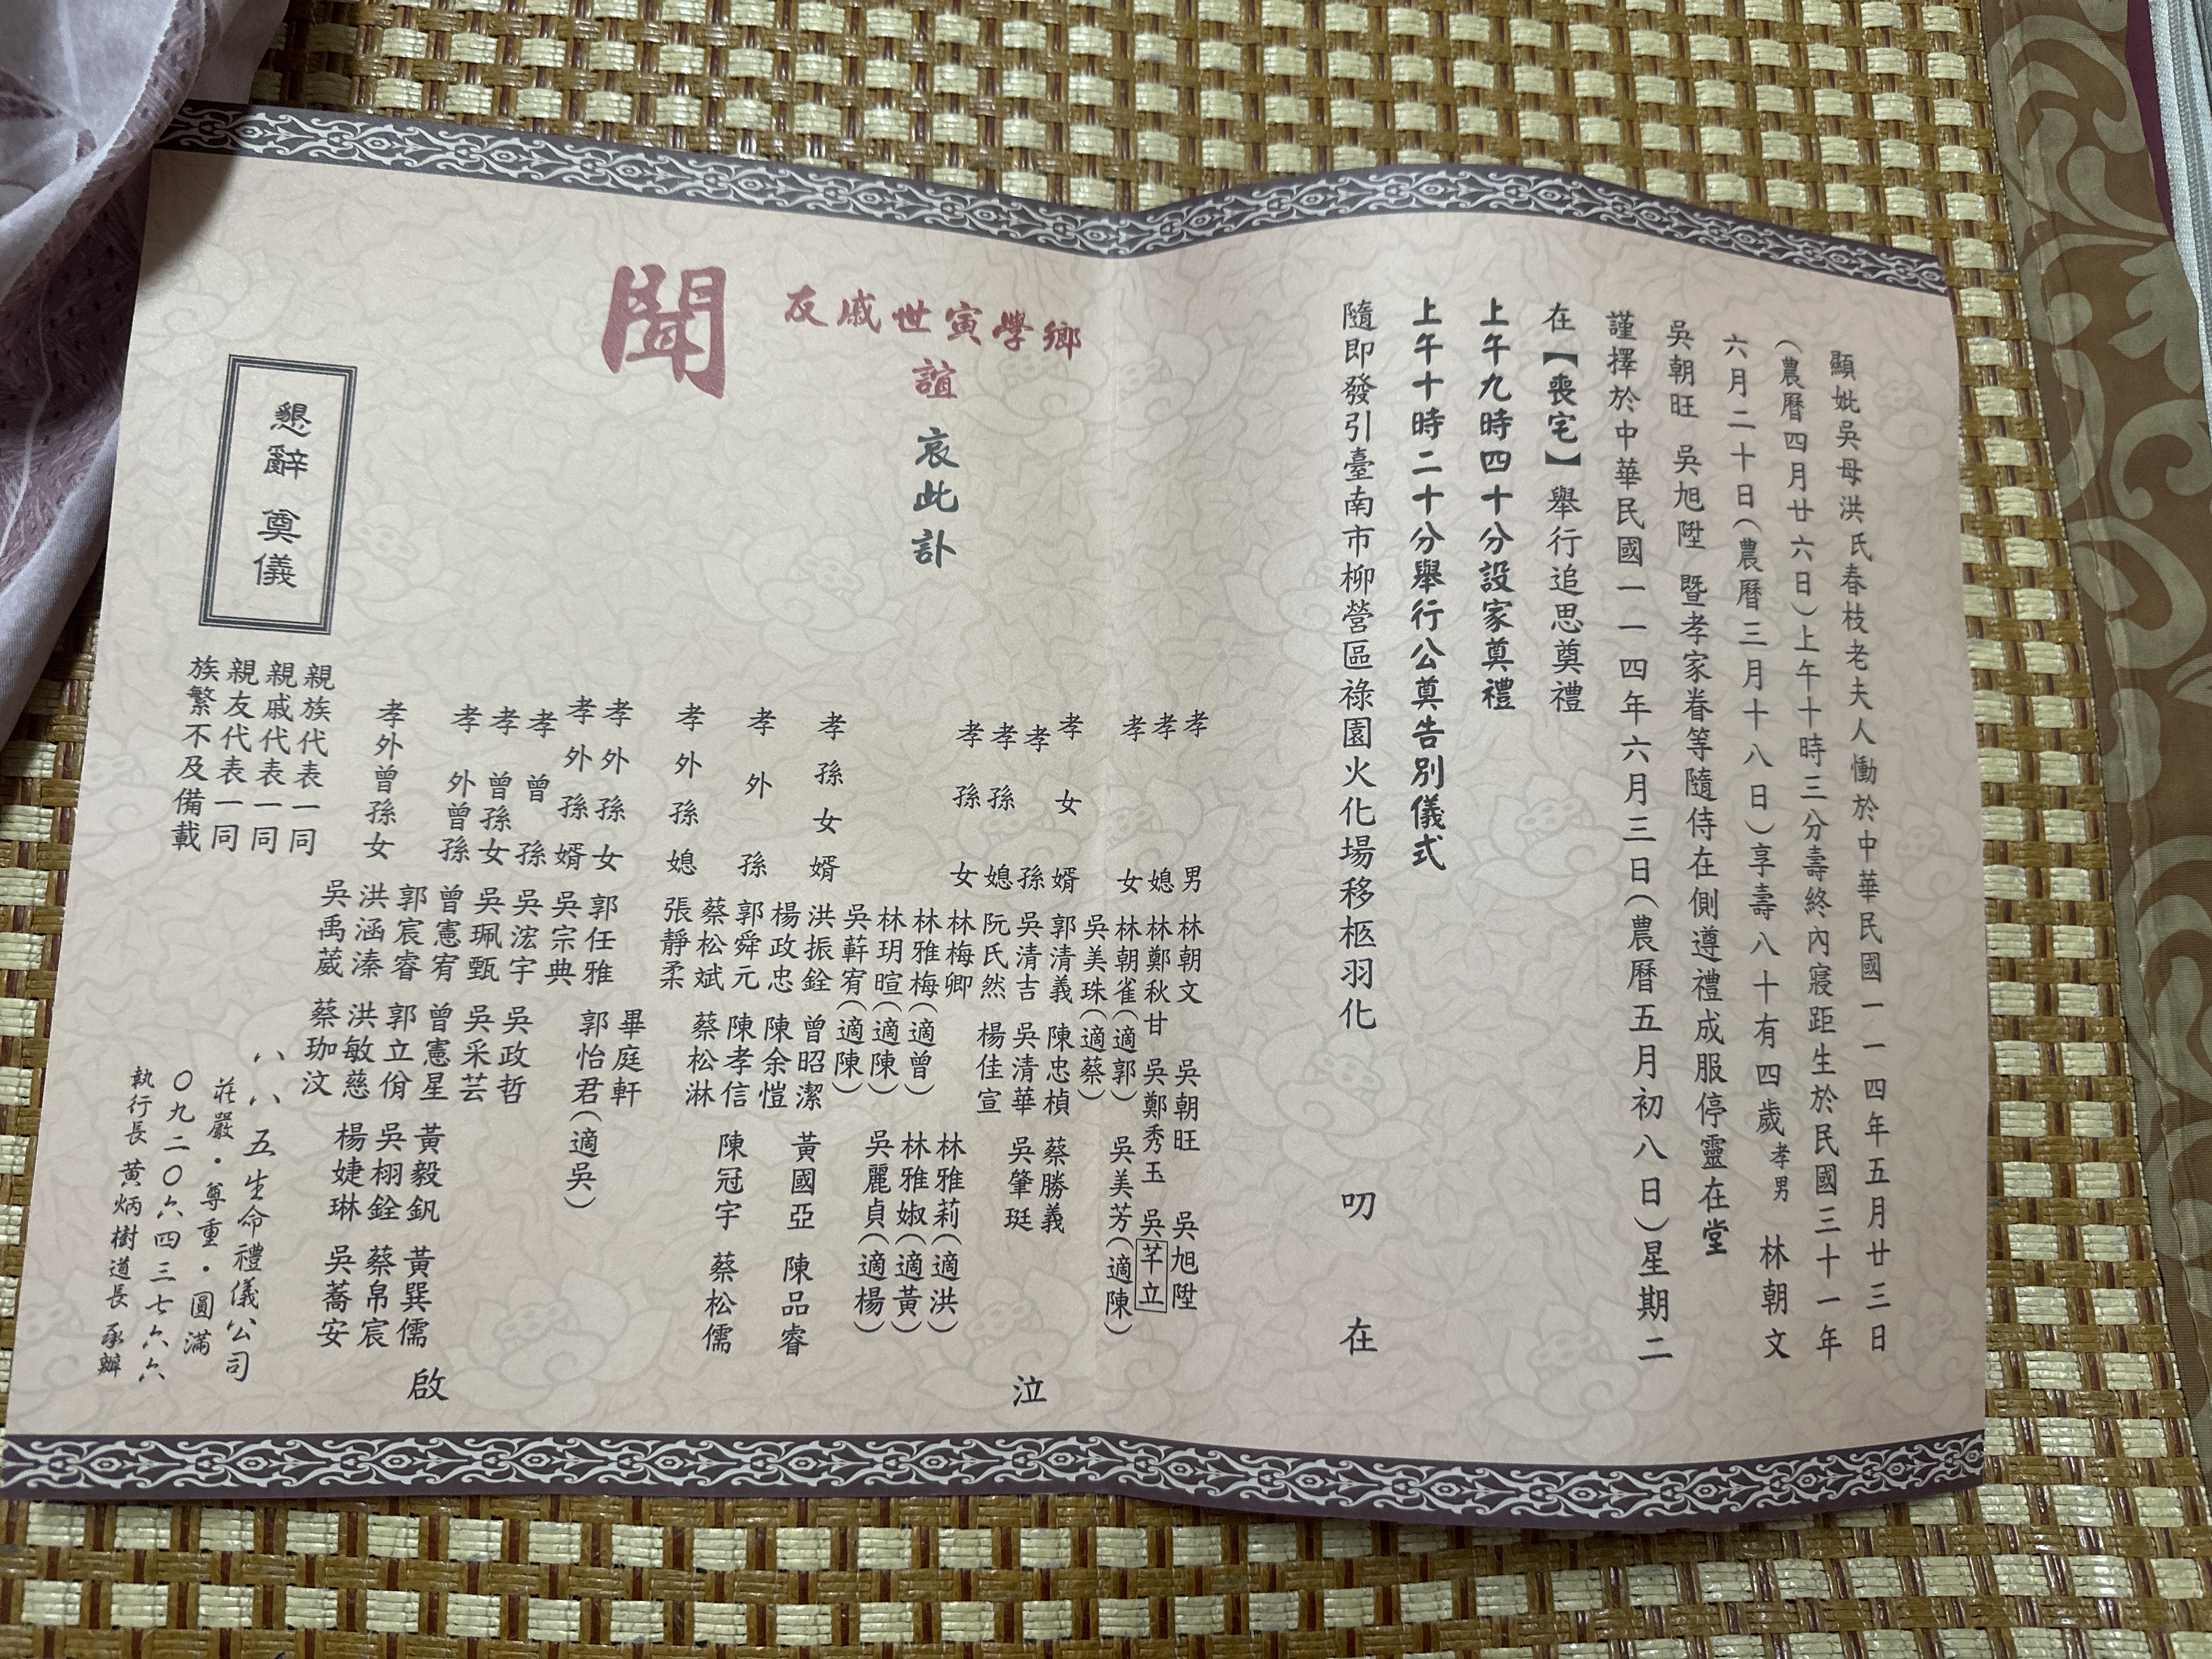 顯妣吳母洪氏春枝老夫人慟於中華民國一一四年五月廿三日
(農曆四月廿六日)上午十時三分壽終內寢距生於民國三十一年
六月二十日(農曆三月十八日)享壽八十有四歲孝男 林朝文
吳朝旺 吳旭陞 暨孝家眷等隨侍在側遵禮成服停靈在堂
謹擇於中華民國一一四年六月三日(農曆五月初八日)星期二
在【喪宅】舉行追思奠禮
上午九時四十分設家奠禮
上午十時二十分舉行公奠告別儀式
隨即發引臺南市柳營區祿園火化場移柩羽化
叨 在
鄉學寅世戚友
誼 哀此訃
聞
孝男 林朝文 吳朝旺 吳旭陞
孝媳 林鄭秋甘 吳鄭秀玉 吳芊立
孝女 林朝雀(適郭) 吳美芳(適陳)
吳美珠(適蔡)
孝女婿 郭清義 陳忠楨 蔡勝義
孝孫 吳清吉 吳清華 吳肇珽
孝孫媳 阮氏然 楊佳宣
孝孫女 林梅卿 林雅莉(適洪)
林雅梅(適曾) 林雅婌(適黃)
林玥暄(適陳) 吳麗貞(適楊)
吳蘚宥(適陳)
孝孫女婿 洪振銓 曾昭潔 黃國亞 陳品睿
楊政忠 陳余愷
孝外孫 郭舜元 陳孝信 陳冠宇 蔡松儒
蔡松斌 蔡松淋
孝外孫媳 張靜柔
孝外孫女 郭任雅 郭怡君(適吳)
孝外孫婿 吳宗典 畢庭軒
孝曾孫 吳浤宇 吳政哲
孝曾孫女 吳珮甄 吳采芸
孝外曾孫 曾憲宥 曾憲星 黃毅釩 黃巽儒
郭宸睿 郭立佾 吳栩銓 蔡帛宸
孝外曾孫女 洪涵溱 洪敏慈 楊婕琳 吳蕎安
吳禹葳 蔡珈汶
泣 啟
親族代表一同
親戚代表一同
親友代表一同
族繁不及備載
懇辭 奠儀
八八五生命禮儀公司
莊嚴・尊重・圓滿
〇九二〇六四三七六六
執行長 黃炳樹道長 承辦